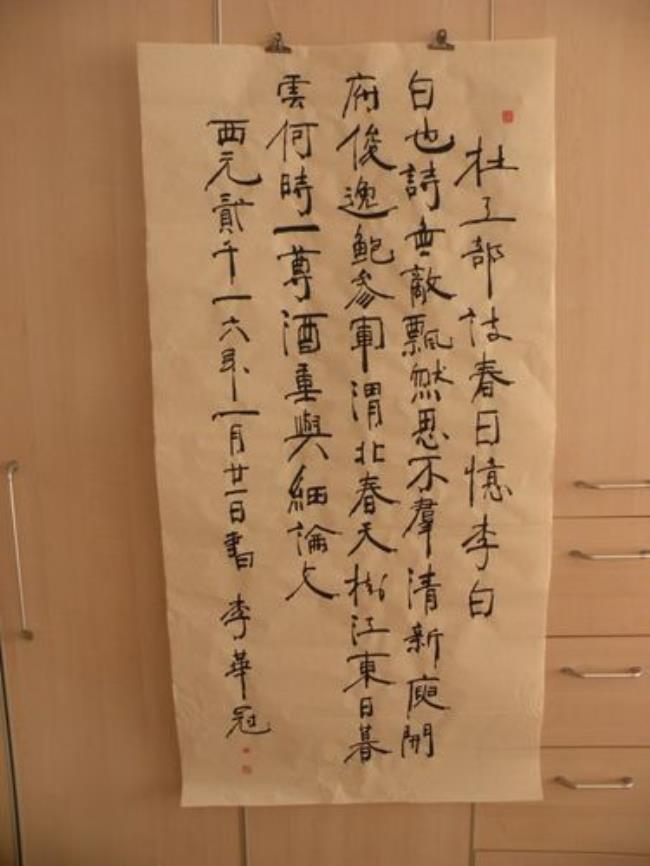 杜工部诗春日憶李白
白也詩無敵飄然思不羣清新庾開
府俊逸鮑参軍渭北春天樹江東日暮
雲何時一尊酒重與細論文
西元貳千一六年一月廿一日書 李華冠